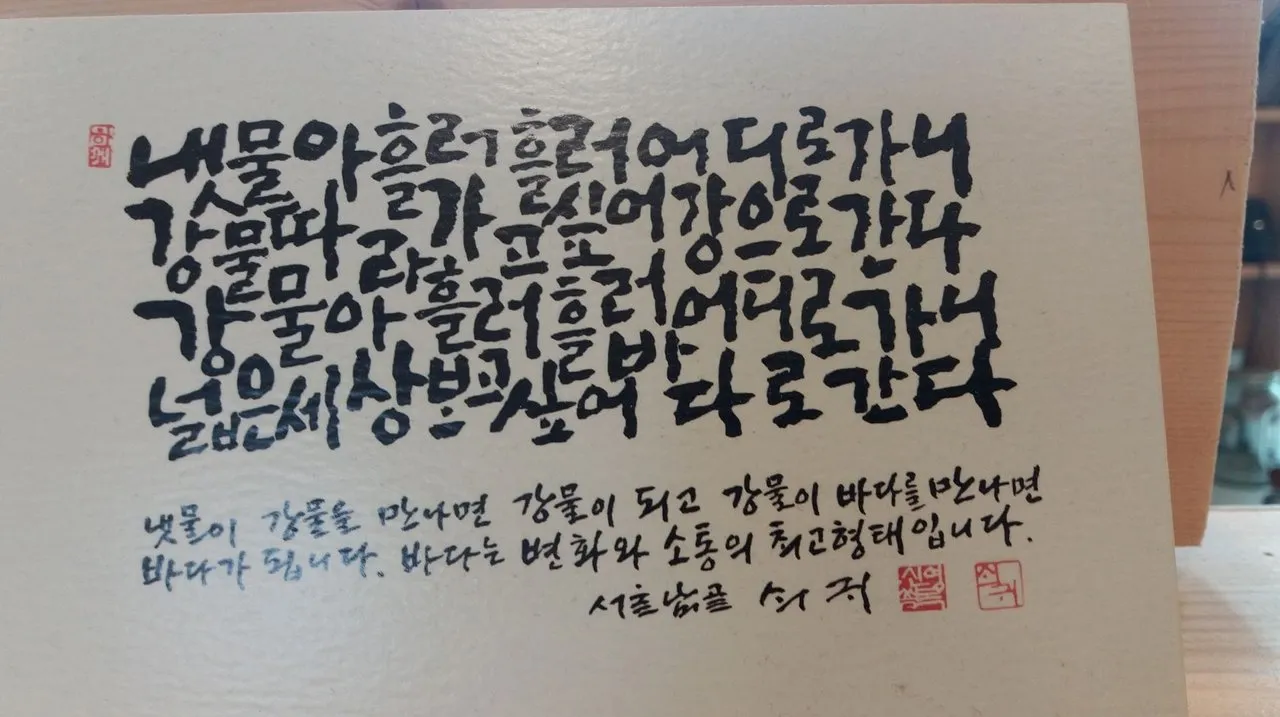 냇물아 흘러 흘러 어디로 가니
강물따라 가고 싶어 강으로 간다
강물아 흘러 흘러 어디로 가니
넓은 세상 보고 싶어 바다로 간다
냇물이 강물을 만나면 강물이 되고 강물이 바다를 만나면
바다가 됩니다. 바다는 변화와 소통의 최고형태입니다.